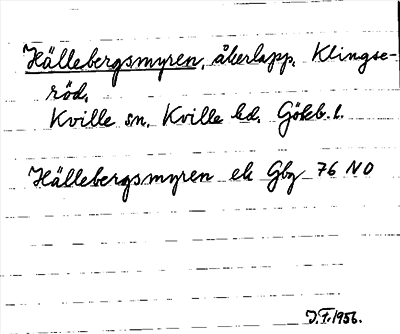 Hällebergsmyren, åkerlapp, Klingse-
röd,
Kville sn, Kville hd, Göteb. l.
Hällebergsmyren ek Gbg 76 NO
J.F. 1956.